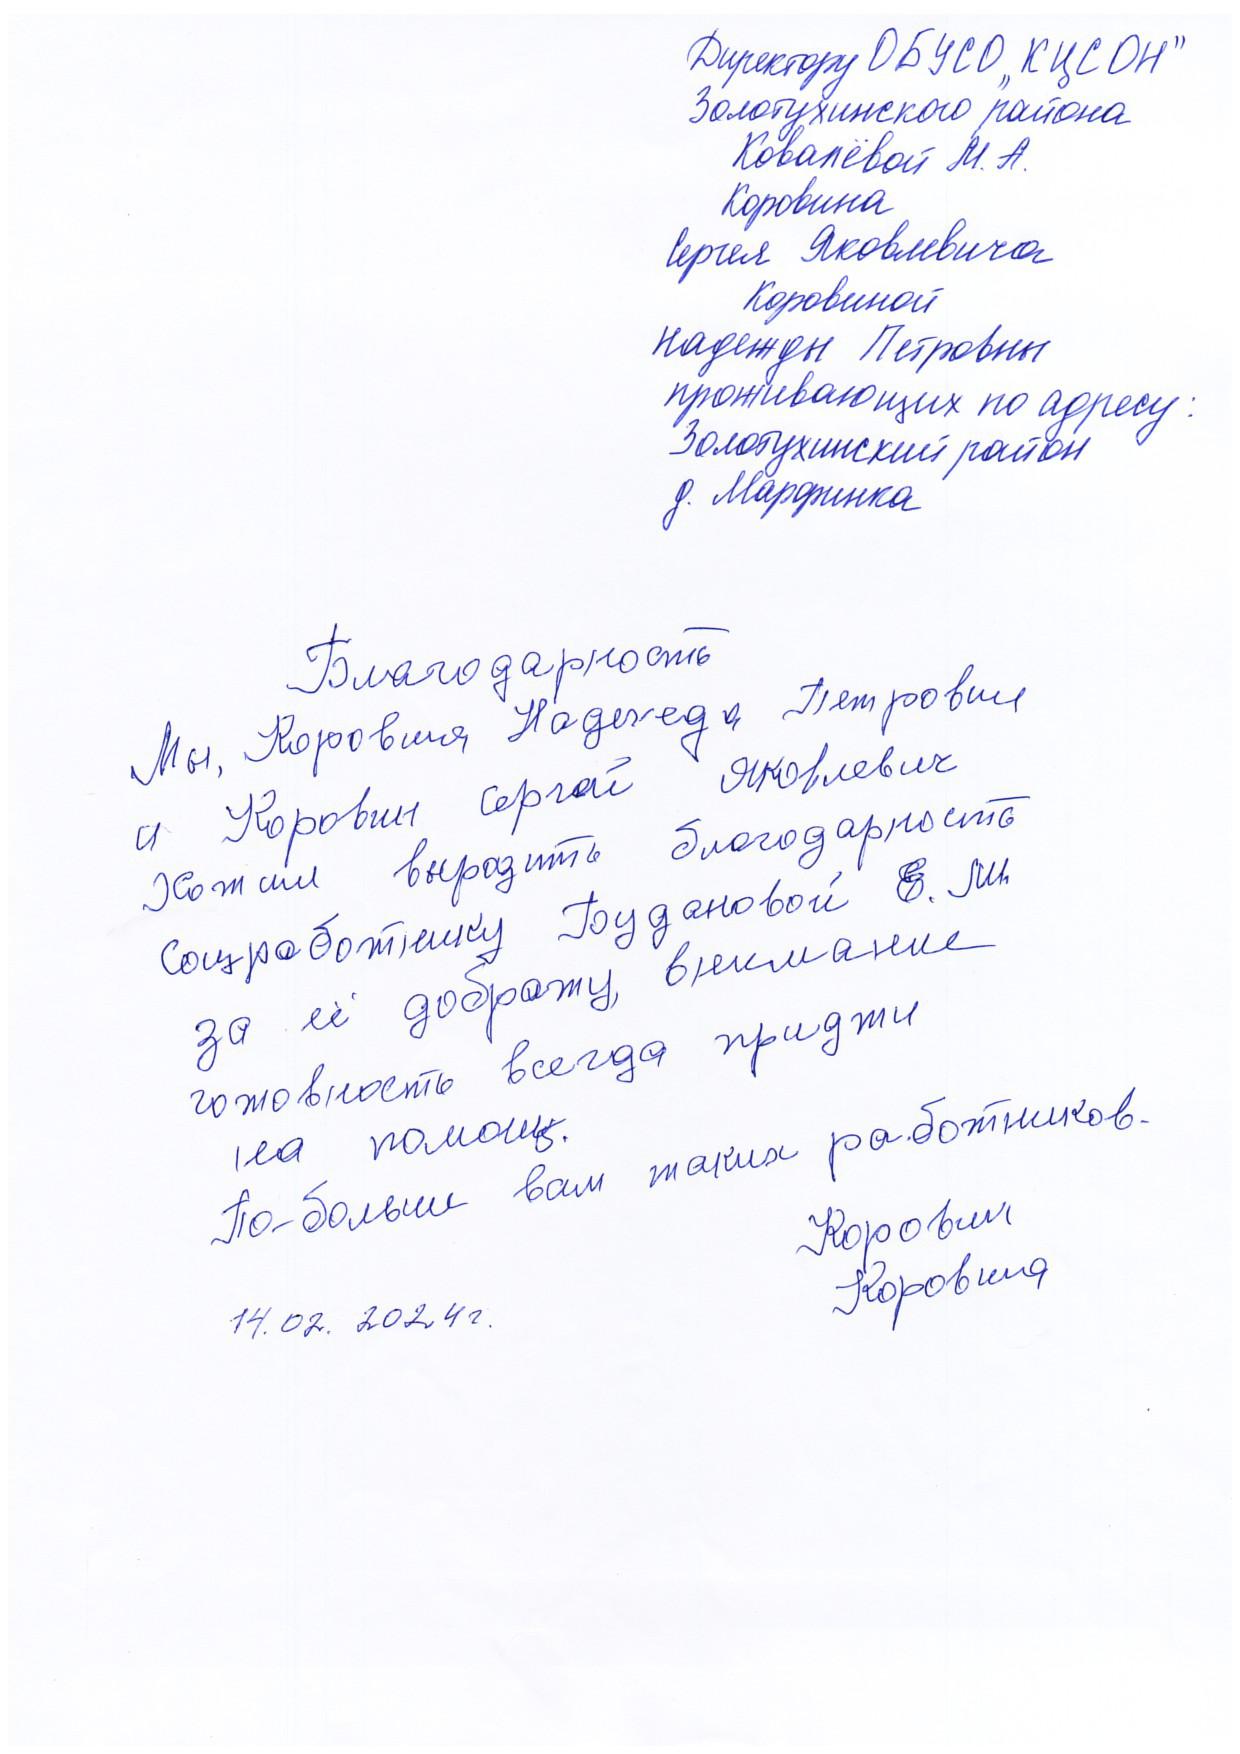 Директору ОБУСО „КЦСОН"
Золотухинского района
Ковалёвой М. А.
Коровина
Сергея Яковлевича
Коровиной
Надежды Петровны
проживающих по адресу:
Золотухинский район
д. Марфинка
Благодарность
Мы, Коровина Надежда Петровна
и Коровин Сергей Яковлевич
Хотим выразить благодарность
соцработнику Будановой Е. М.
за её доброту, внимание
готовность всегда придти
на помощь.
По-больше вам таких работников.
Коровин
Коровина
14.02.2024г.